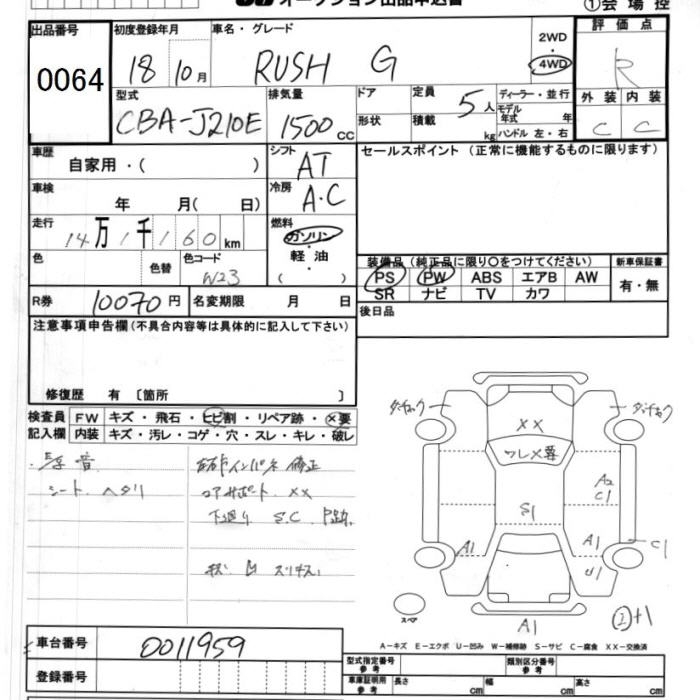 オークション出品申込書
①会場控
出品番号 0064
初度登録年月 18 10月
車名・グレード RUSH G
2WD・4WD
評価点 R
型式 CBA-J210E
排気量 1500 CC
ドア
形状
定員 5人
積載 kg
ディーラー・並行
モデル年式 年
ハンドル 左・右
外装 C
内装 C
車歴 自家用・( )
シフト AT
セールスポイント (正常に機能するものに限ります)
車検 年 月( 日)
冷房 A.C
走行 14万1千160km
燃料 ガソリン・軽油・( )
色
色替
色コード W23
装備品 (純正品に限り○をつけてください)
PS PW ABS エアB AW
SR ナビ TV カワ
新車保証書 有・無
R券 10070円
名変期限 月 日
後日品
注意事項申告欄 (不具合内容等は具体的に記入して下さい)
修復歴 有 〔箇所 〕
検査員記入欄
FW キズ・飛石・ヒビ割・リペア跡・×要
内装 キズ・汚レ・コゲ・穴・スレ・キレ・破レ
シート ヘタリ
コアサポート XX
下廻り S.C P跡
XX
フレ×要
S1
A2
C1
A1
A1
U1
C1
A1
スペア
A-キズ E-エクボ U-凹み W-補修跡 S-サビ C-腐食 XX-交換済
車台番号 0011959
登録番号
型式指定番号 参考
類別区分番号 参考
車庫証明用 参考 長さ cm 幅 cm 高さ cm